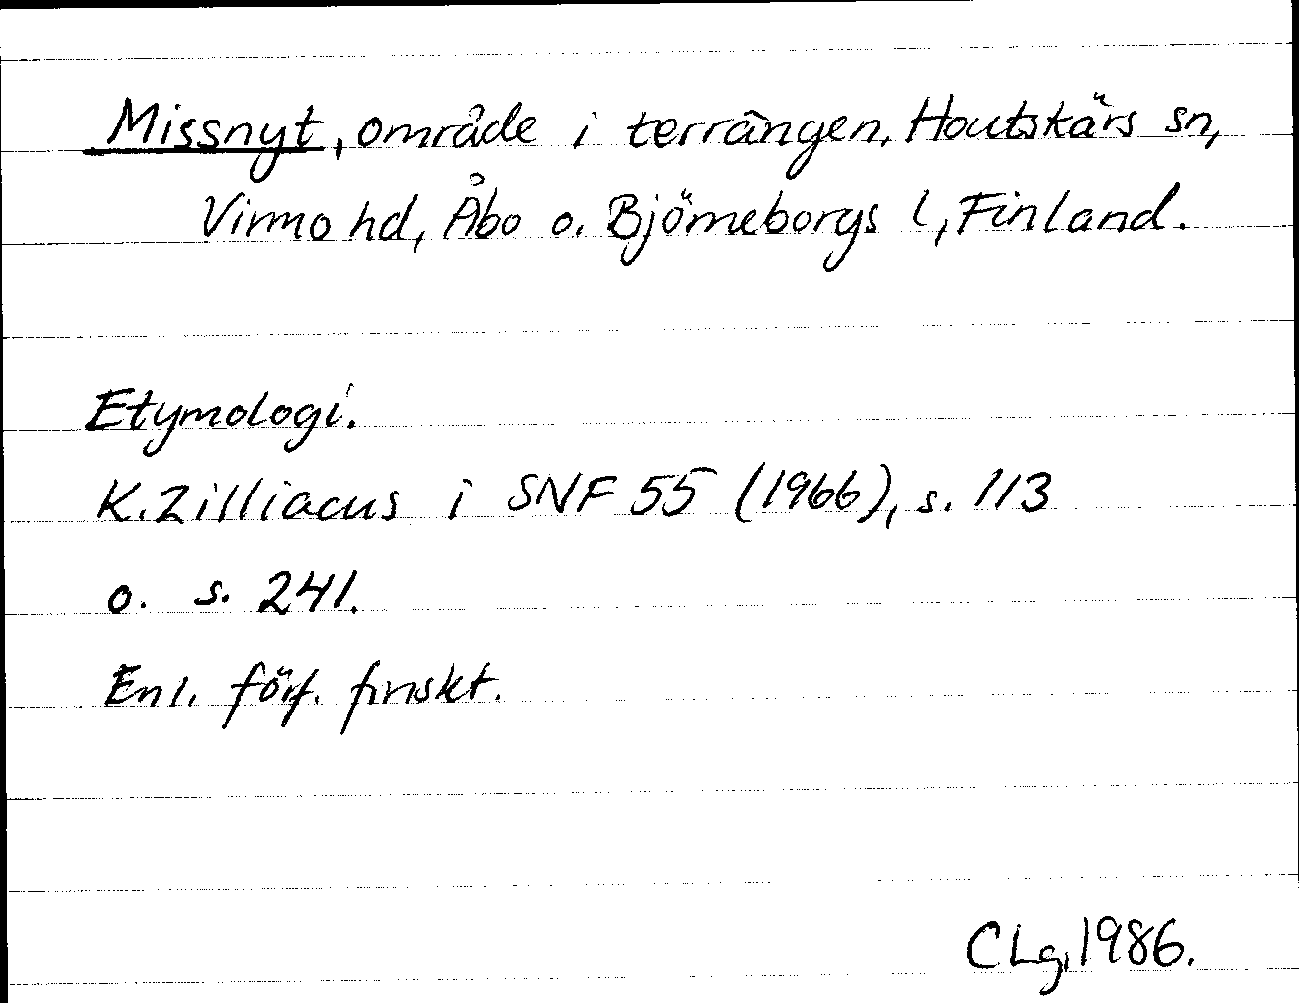 Missnyt, område i terrängen, Houtskärs sn,
Virmo hd, Åbo o. Björneborgs l, Finland.
Etymologi.
K. Zilliacus i SNF 55 (1966), s. 113
o. s. 241.
Enl. förf. finskt.
CLg, 1986.